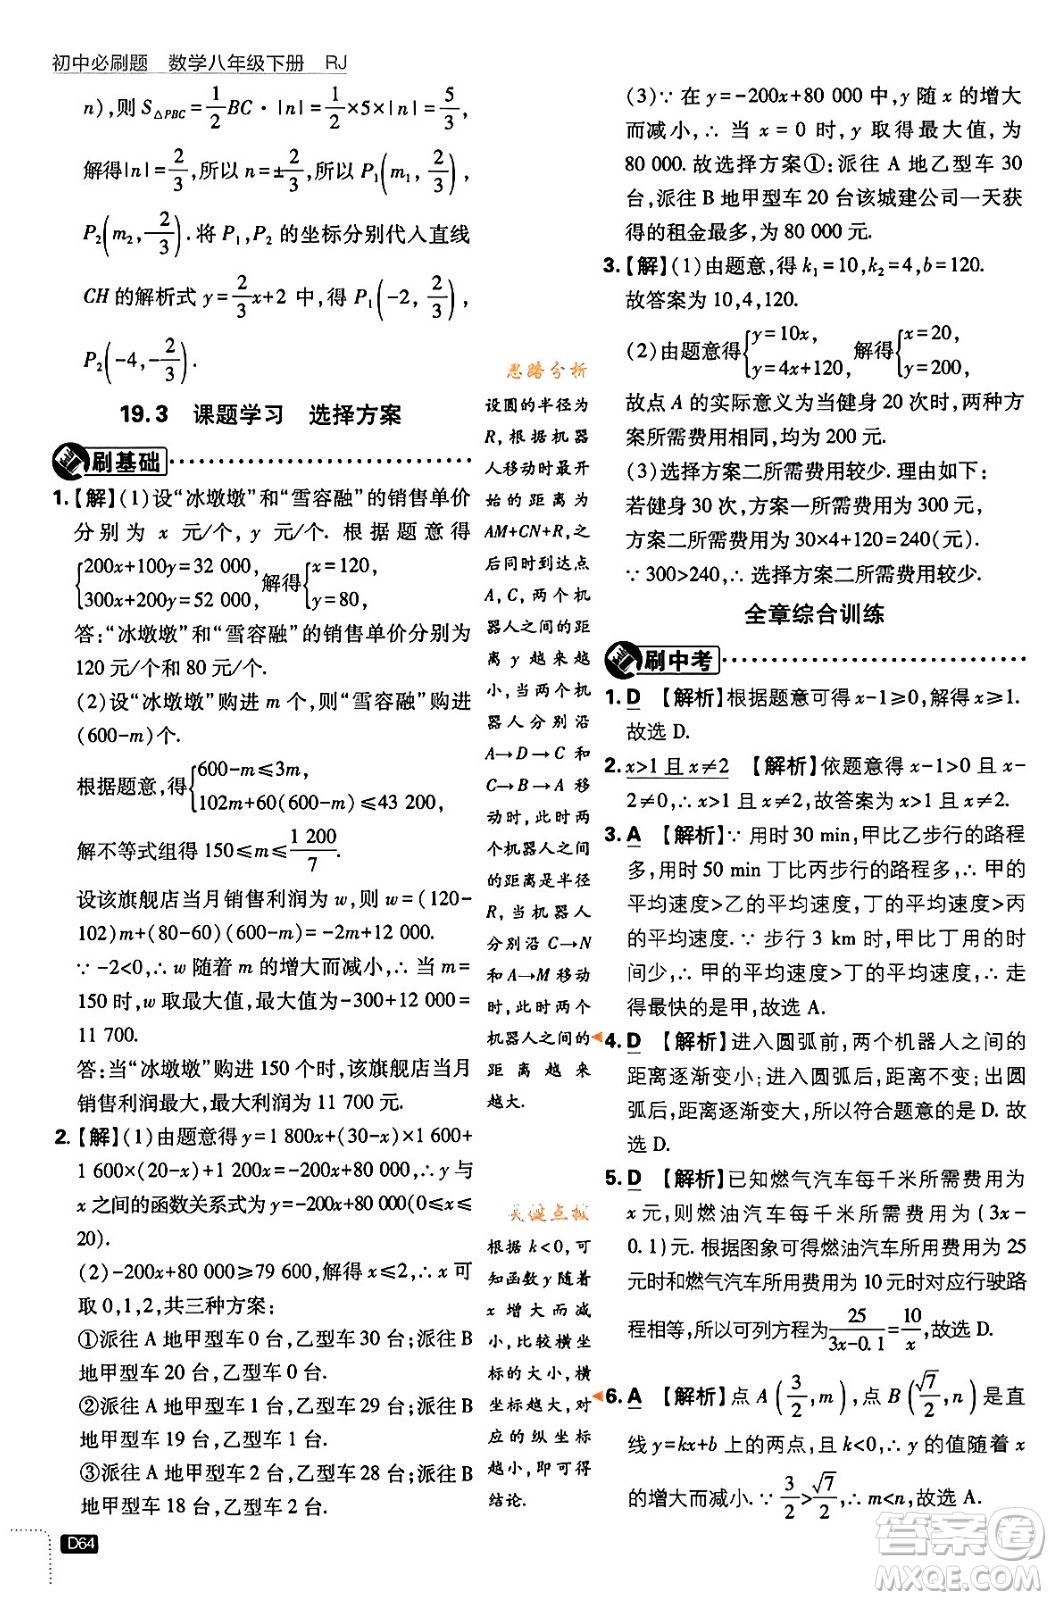 初中必刷题 数学八年级下册 RJ
n),则 S△PBC = 1/2 BC·|n| = 1/2×5×|n| = 5/3,
解得|n| = 2/3,所以 n = ±2/3,所以 P₁(m₁, 2/3),
P₂(m₂, -2/3). 将 P₁,P₂ 的坐标分别代入直线
CH 的解析式 y = 2/3 x+2 中,得 P₁(-2, 2/3),
P₂(-4, -2/3).
19.3 课题学习 选择方案
刷基础
1.【解】(1)设“冰墩墩”和“雪容融”的销售单价
分别为 x 元/个,y 元/个. 根据题意得
{200x+100y=32 000, 300x+200y=52 000, 解得{x=120, y=80,
答:“冰墩墩”和“雪容融”的销售单价分别为
120 元/个和 80 元/个.
(2)设“冰墩墩”购进 m 个,“雪容融”购进
(600-m)个.
根据题意,得{600-m≤3m, 102m+60(600-m)≤43 200,
解不等式组得 150≤m≤1 200/7.
设该旗舰店当月销售利润为 w,则 w=(120-
102)m+(80-60)(600-m)=-2m+12 000.
∵ -2<0,∴ w 随着 m 的增大而减小,∴ 当 m=
150 时,w 取最大值,最大值为-300+12 000=
11 700.
答:当“冰墩墩”购进 150 个时,该旗舰店当月
销售利润最大,最大利润为 11 700 元.
2.【解】(1)由题意得 y=1 800x+(30-x)×1 600+
1 600×(20-x)+1 200x=-200x+80 000,∴ y 与
x 之间的函数关系式为 y=-200x+80 000(0≤x≤
20).
(2)-200x+80 000≥79 600,解得 x≤2,∴ x 可
取 0,1,2,共三种方案:
①派往 A 地甲型车 0 台,乙型车 30 台;派往 B
地甲型车 20 台,乙型车 0 台.
②派往 A 地甲型车 1 台,乙型车 29 台;派往 B
地甲型车 19 台,乙型车 1 台.
③派往 A 地甲型车 2 台,乙型车 28 台;派往 B
地甲型车 18 台,乙型车 2 台.
D64
思路分析
设圆的半径为
R,根据机器
人移动时最开
始的距离为
AM+CN+R,之
后同时到达点
A,C,两个机
器人之间的距
离 y 越来越
小,当两个机
器人分别沿
A→D→C 和
C→B→A 移
动时,机器人
之间的距离
的距离是半径
R,当机器人
分别沿 C→N
和 A→M 移动
时,此时两个
机器人之间的
距离越来
越大.
关键点拨
根据 k<0,可
知函数 y 随着
x 增大而减
小,比较横坐
标的大小,横
坐标越大,对
应的纵坐标
越小,即可得
结论.
(3)∵ 在 y=-200x+80 000 中,y 随 x 的增大
而减小,∴ 当 x=0 时,y 取得最大值,为
80 000. 故选择方案①:派往 A 地乙型车 30
台,派往 B 地甲型车 20 台该城建公司一天获
得的租金最多,为 80 000 元.
3.【解】(1)由题意,得 k₁=10,k₂=4,b=120.
故答案为 10,4,120.
(2)由题意得{y=10x, y=4x+120, 解得{x=20, y=200.
故点 A 的实际意义为当健身 20 次时,两种方
案所需费用相同,均为 200 元.
(3)选择方案二所需费用较少. 理由如下:
若健身 30 次,方案一所需费用为 300 元,
方案二所需费用为 30×4+120=240(元).
∵ 300>240,∴ 选择方案二所需费用较少.
全章综合训练
刷中考
1. D 【解析】根据题意可得 x-1≥0,解得 x≥1.
故选 D.
2. x>1 且 x≠2 【解析】依题意得 x-1>0 且 x-
2≠0,∴ x>1 且 x≠2,故答案为 x>1 且 x≠2.
3. A 【解析】∵ 用时 30 min,甲比乙步行的路程
多,用时 50 min 丁比丙步行的路程多,∴ 甲的
平均速度>乙的平均速度,丁的平均速度>丙
的平均速度. ∵ 步行 3 km 时,甲比丁用的时
间少,∴ 甲的平均速度>丁的平均速度,∴ 走
得最快的是甲,故选 A.
4. D 【解析】进入圆弧前,两个机器人之间的
距离逐渐变小;进入圆弧后,距离不变;出圆
弧后,距离逐渐变大,选项中符合题意的是 D. 故
选 D.
5. D 【解析】已知燃气汽车每千米所需费用为
x 元,则燃油汽车每千米所需费用为(3x-
0.1)元. 根据图象可得燃油汽车所用费用为 25
元时和燃气汽车所用费用为 10 元时对应行驶路
程相等,所以可列方程为 25/(3x-0.1) = 10/x,故选 D.
6. A 【解析】点 A(3/2, m),点 B(√7/2, n)是直
线 y=kx+b 上的两点,且 k<0,∴ y 的值随着 x
的增大而减小. ∵ 3/2 > √7/2,∴ m<n,故选 A.
答案圈
MXQE.COM